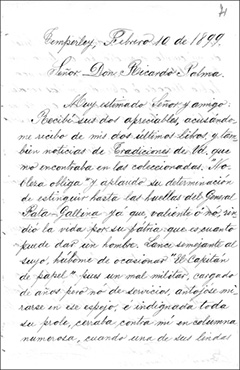 71
Temperley, Febrero 10 de 1899.
Señor Don Ricardo Palma.
Muy estimado Señor y amigo:
Recibí sus dos apreciables, acusándo
me recibo de mis dos últimos libros, y tam
bién noticias de Tradiciones de Vd. que
no encontraba en las coleccionadas. "No
bleza obliga" y aplaudo su determinación
de estinguir hasta las huellas del General
Pata-Gallina ya que, valiente ó nó, rin
dió la vida por su patria que es cuanto
puede dar un hombre. Lance semejante al
suyo, húbome de ocasionar "El Capitán
de papel". Pues un mal militar, cargado
de años pero no de servicios, antojóse mi
rarse en ese espejo, é indignada toda
su prole, cerraba contra mí en columna
numerosa, cuando una de sus lindas